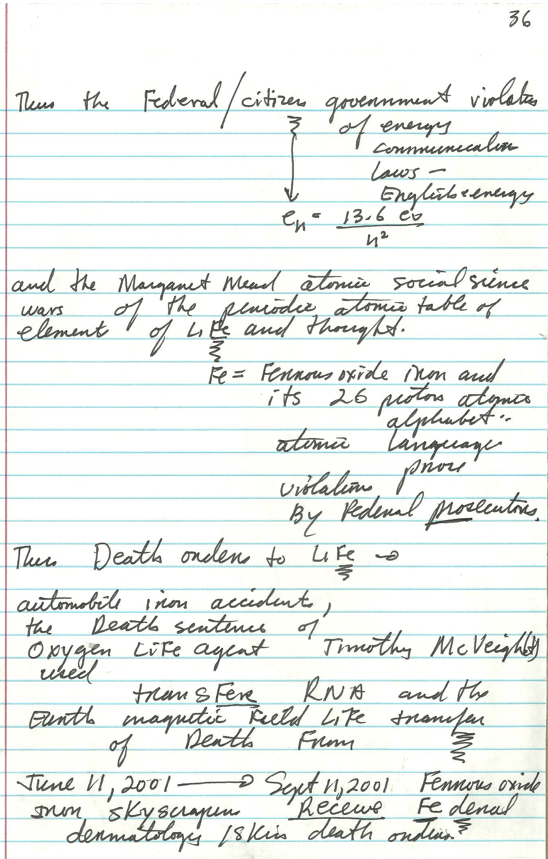 36
Thus the Federal/citizen government violates
of energy
communication
laws –
English = energy
en = 13.6 ev
n²
and the Margaret Mead atomic social sience
wars of the periodic atomic table of
element of LiFe and thought.
Fe = Ferrous oxide iron and
its 26 proton atomic
alphabet..
atomic language
prior
violations
By Federal prosecutors.
Thus Death orders to LiFe →
automobile iron accidents,
the Death sentence of
Oxygen LiFe agent Timothy McVeigh(t)
used
transFere RNA and the
Earth magnetic Field LiFe transfer
of Death From
June 11, 2001 → Sept 11, 2001 Ferrous oxide
iron skyscrapers Receive Federal
dermatology/skin death orders.